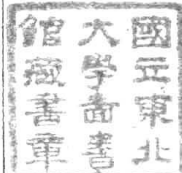 國立東北
大學圖書
館藏書章